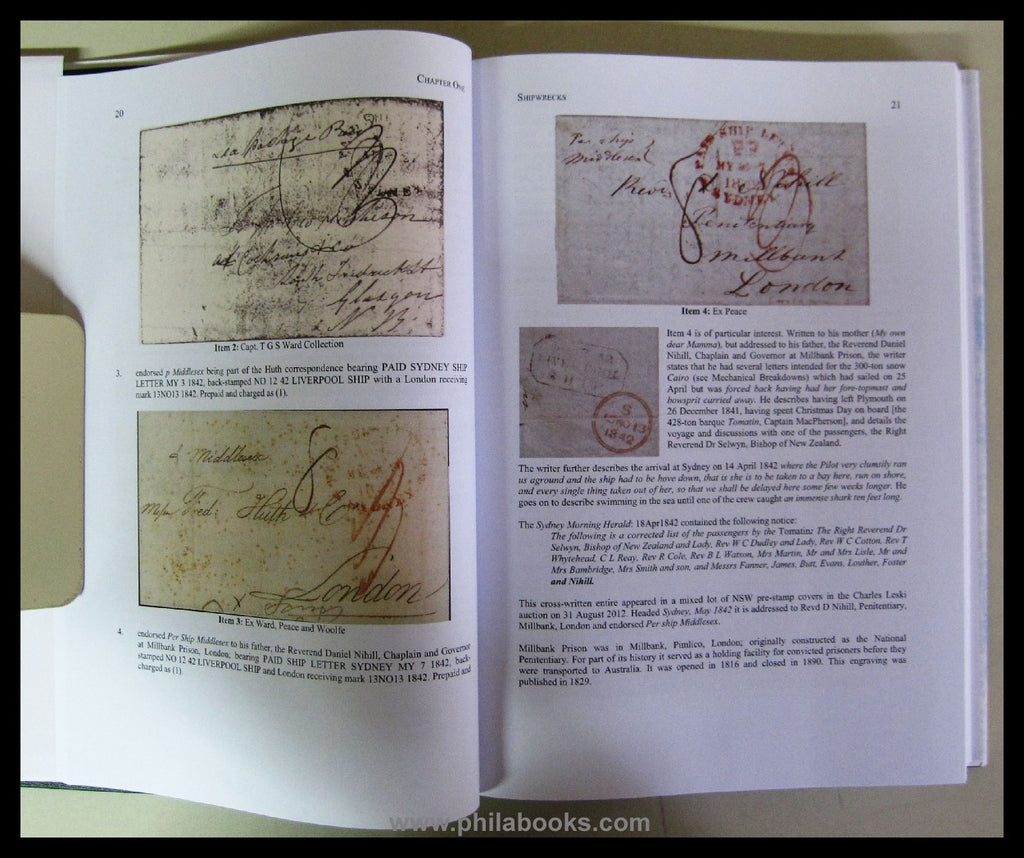 20
CHAPTER ONE
Sea Postage Paid
Glasgow
N. B.
Item 2: Capt. T G S Ward Collection
3. endorsed p Middlesex being part of the Huth correspondence bearing PAID SYDNEY SHIP
LETTER MY 3 1842, back-stamped NO 12 42 LIVERPOOL SHIP with a London receiving
mark 13NO13 1842. Prepaid and charged as (1).
Middlesex
Messrs Fred: Huth & Co
London
Item 3: Ex Ward, Peace and Woolfe
4. endorsed Per Ship Middlesex to his father, the Reverend Daniel Nihill, Chaplain and Governor
at Millbank Prison, London, bearing PAID SHIP LETTER SYDNEY MY 7 1842, back-
stamped NO 12 42 LIVERPOOL SHIP and London receiving mark 13NO13 1842. Prepaid and
charged as (1).
SHIPWRECKS
21
Per ship
Middlesex
PAID SHIP LETTER
MY 7
SYDNEY
Nihill
Penitentiary
Millbank
London
Item 4: Ex Peace
S
13NO13
1842
Item 4 is of particular interest. Written to his mother (My own
dear Mamma), but addressed to his father, the Reverend Daniel
Nihill, Chaplain and Governor at Millbank Prison, the writer
states that he had several letters intended for the 300-ton snow
Cairo (see Mechanical Breakdowns) which had sailed on 25
April but was forced back having had her fore-topmast and
bowsprit carried away. He describes having left Plymouth on
26 December 1841, having spent Christmas Day on board [the
428-ton barque Tomatin, Captain MacPherson], and details the
voyage and discussions with one of the passengers, the Right
Reverend Dr Selwyn, Bishop of New Zealand.
The writer further describes the arrival at Sydney on 14 April 1842 where the Pilot very clumsily ran
us aground and the ship had to be hove down, that is she is to be taken to a bay here, run on shore,
and every single thing taken out of her, so that we shall be delayed here some few weeks longer. He
goes on to describe swimming in the sea until one of the crew caught an immense shark ten feet long.
The Sydney Morning Herald: 18Apr1842 contained the following notice:
The following is a corrected list of the passengers by the Tomatin: The Right Reverend Dr
Selwyn, Bishop of New Zealand and Lady, Rev W C Dudley and Lady, Rev W C Cotton, Rev T
Whytehead, C L Reay, Rev R Cole, Rev B L Watson, Mrs Martin, Mr and Mrs Lisle, Mr and
Mrs Bambridge, Mrs Smith and son, and Messrs Fanner, James, Butt, Evans, Louther, Foster
and Nihill.
This cross-written entire appeared in a mixed lot of NSW pre-stamp covers in the Charles Leski
auction on 31 August 2012. Headed Sydney, May 1842 it is addressed to Revd D Nihill, Penitentiary,
Millbank, London and endorsed Per ship Middlesex.
Millbank Prison was in Millbank, Pimlico, London; originally constructed as the National
Penitentiary. For part of its history it served as a holding facility for convicted prisoners before they
were transported to Australia. It was opened in 1816 and closed in 1890. This engraving was
published in 1829.
www.philabooks.com